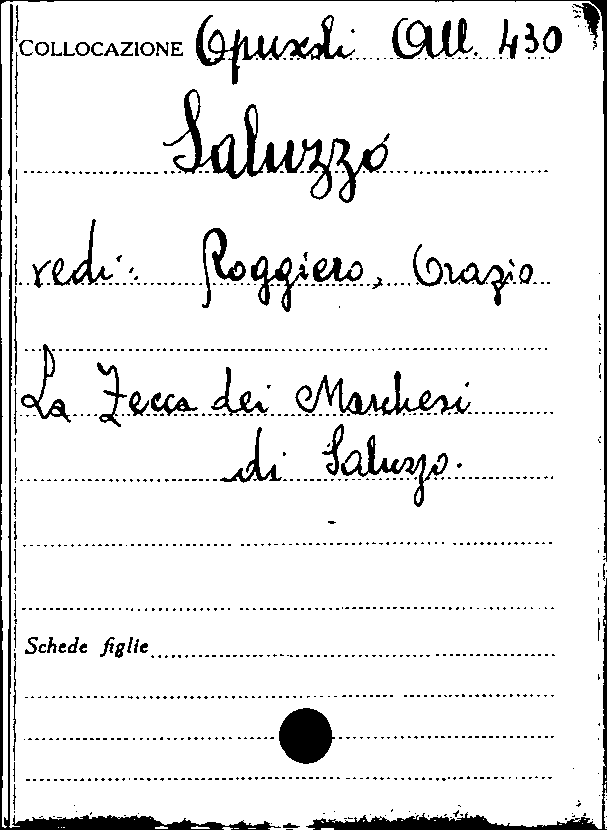 COLLOCAZIONE Opuscoli All. 430
Saluzzo
vedi: Roggiero, Orazio
La Zecca dei Marchesi
di Saluzzo.
Schede figlie